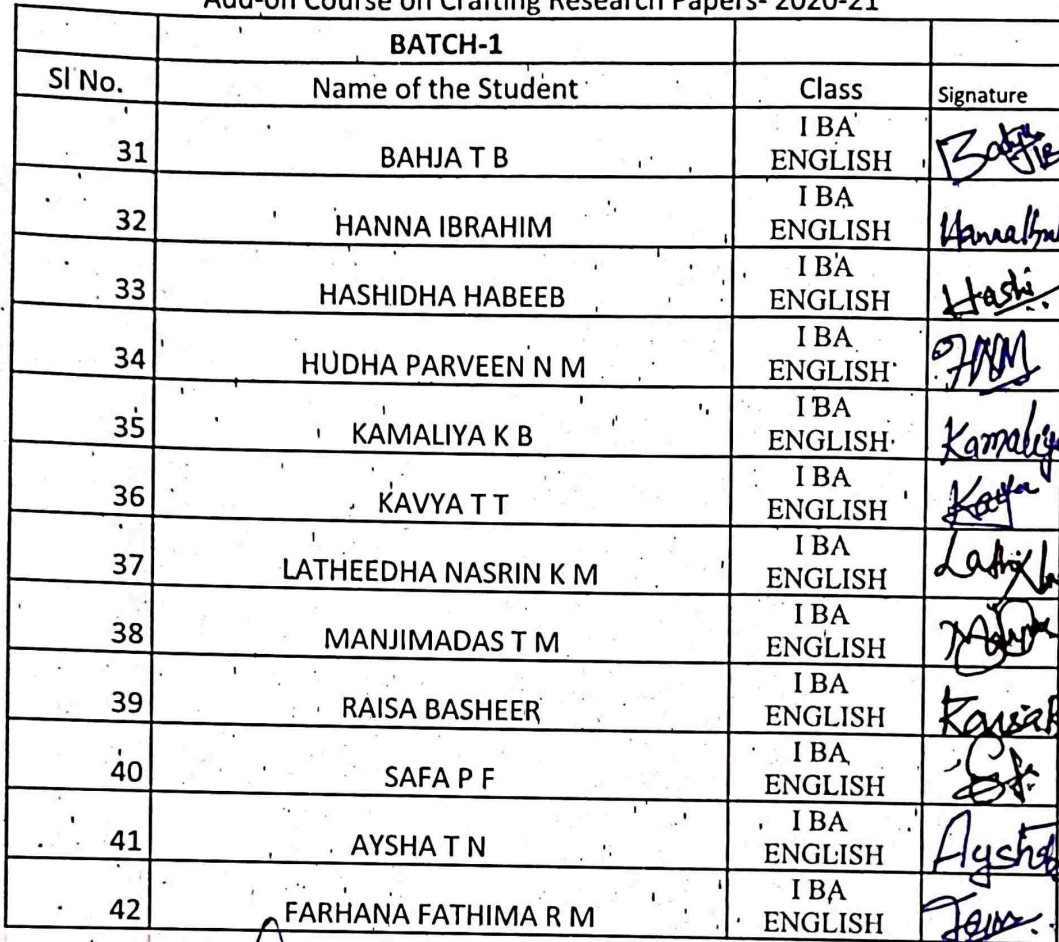 Add-on Course on Crafting Research Papers- 2020-21
BATCH-1
Sl No. Name of the Student Class Signature
31 BAHJA T B I BA ENGLISH
32 HANNA IBRAHIM I BA ENGLISH
33 HASHIDHA HABEEB I BA ENGLISH Hashi
34 HUDHA PARVEEN N M I BA ENGLISH HNM
35 KAMALIYA K B I BA ENGLISH Kamaliya
36 KAVYA T T I BA ENGLISH Kavya
37 LATHEEDHA NASRIN K M I BA ENGLISH
38 MANJIMADAS T M I BA ENGLISH
39 RAISA BASHEER I BA ENGLISH
40 SAFA P F I BA ENGLISH
41 AYSHA T N I BA ENGLISH Aysha
42 FARHANA FATHIMA R M I BA ENGLISH